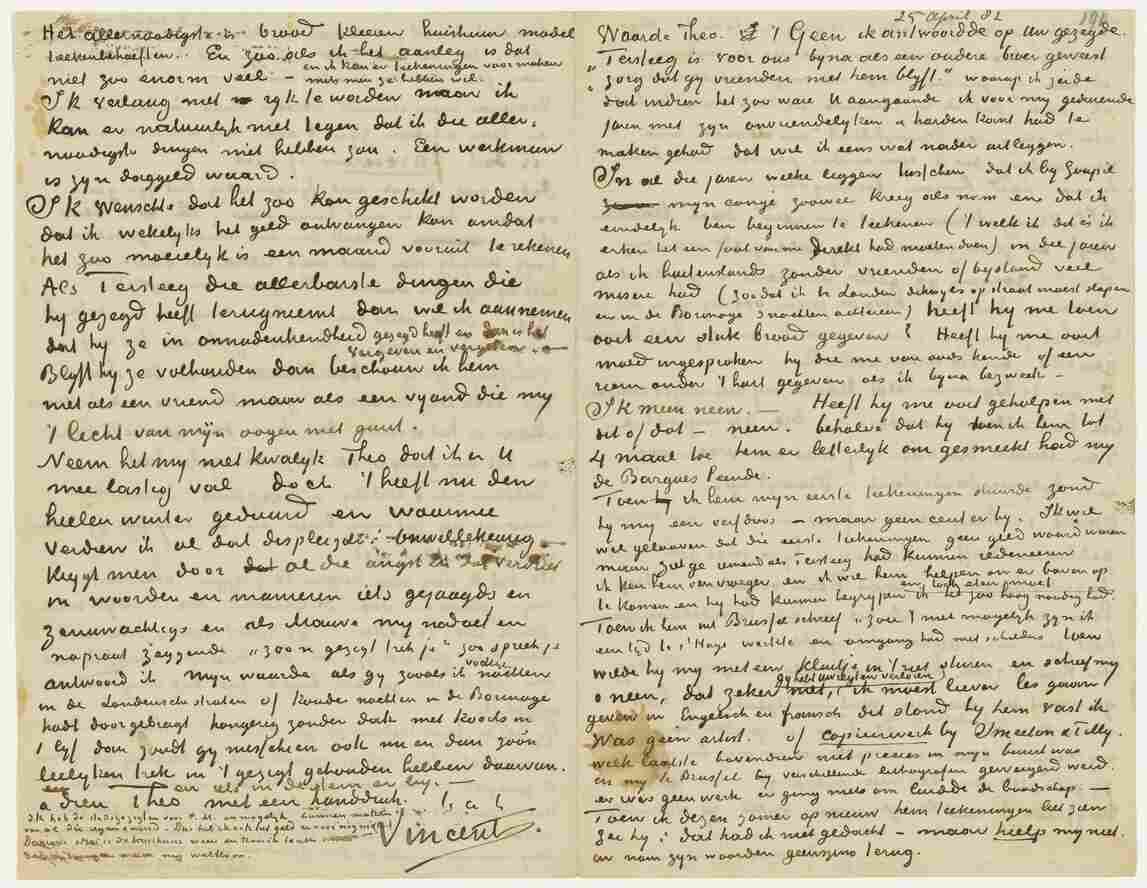 Het allernoodigste is brood kleeren huishuur model
teekenbehoeften. En zoo als ik het aanleg is dat
niet zoo enorm veel – en ik kan er teekeningen voor maken
mits men ze hebben wil.
Ik verlang niet ryk te worden maar ik
kan er natuurlyk niet tegen dat ik die aller-
noodigste dingen niet hebben zou. Een werkman
is zyn daggeld waard.
Ik wenschte dat het zoo kon geschikt worden
dat ik wekelyks het geld ontvangen kon omdat
het zoo moeielyk is een maand vooruit te rekenen
Als Tersteeg die allerbarste dingen die
hy gezegd heeft terugneemt dan wil ik aannemen
dat hy ze in onnadenkendheid gezegd heeft en dan is het
vergeven en vergeten –
Blyft hy ze volhouden dan beschouw ik hem
niet als een vriend maar als een vyand die my
't licht van mijn oogen niet gunt.
Neem het my niet kwalijk Theo dat ik er U
mee lastig val doch 't heeft nu den
heelen winter geduurd en waarmee
verdien ik al dat displeizier. Onwillekeurig
krygt men door al die angst en dat verdriet
in woorden en manieren iets gejaagds en
zenuwachtigs en als Mauve my nadoet en
napraat zeggende „zoo'n gezigt trek je" „zoo spreek je
antwoord ik mijn waarde als gy zooals ik natte nachten
in de Londensche straten of koude nachten in de Borinage
hadt doorgebragt hongerig zonder dak met koorts in
't lyf dan zoudt gy misschien ook nu en dan zoo'n
leelyken trek in 't gezigt gehouden hebben daarvan.
en iets in de stem er by. –
adieu Theo met een handdruk. t. à t.
Vincent.
25 April 82
Waarde Theo. 't Geen ik antwoordde op Uw gezegde.
„Tersteeg is voor ons byna als een oudere broer geweest
„zorg dat gy vrienden met hem blyft." waarop ik zeide
dat indien het zoo ware U aangaande ik voor my gedurende
jaren met zyn onvriendelyken & harden kant had te
maken gehad dat wil ik eens wat nader uitleggen.
In al die jaren welke liggen tusschen dat ik by Goupil
mijn congé zoowel kreeg als nam en dat ik
eindelyk ben beginnen te teekenen (t welk ik dat is ik
erken het een fout van me direkt had moeten doen) in die jaren
als ik buitenslands zonder vrienden of bystand veel
misere had (zoodat ik te Londen dikwijls op straat moest slapen
en in de Borinage 3 nachten achtereen) heeft hy me toen
ooit een stuk brood gegeven? Heeft hy me ooit
moed ingesproken hy die me van ouds kende of een
riem onder 't hart gegeven als ik byna bezweek –
Ik meen neen. – Heeft hy me ooit geholpen met
dit of dat – neen. behalve dat hy toen ik hem tot
4 maal toe hem er letterlyk om gesmeekt had my
de Bargues leende.
Toen ik hem mijn eerste teekeningen stuurde zond
hy my een verfdoos – maar geen cent er by. Ik wil
wel gelooven dat die eerste teekeningen geen geld waard waren
maar ziet ge iemand als Tersteeg had kunnen redeneeren
ik ken hem van vroeger en ik wil hem helpen om er boven op
te komen en hy had kunnen begrypen en toch eten moet ik het zoo hoog noodig had.
Toen ik hem uit Brussel schreef „zou 't niet mogelyk zyn ik
een tyd te 's Hage werkte en omgang had met schilders toen
wilde hy my met een kluitje in 't riet sturen en schreef my
o neen, dat zeker niet, gy hebt uw regten verloren, ik moest liever les gaan
geven in Engelsch en fransch dit stond by hem vast ik
was geen artist. of copieerwerk by Smeeton & Tilly.
welk laatste bovendien niet precies in myn buurt was
en my te Brussel by verschillende lithografen geweigerd werd.
er was geen werk er ging niets om luidde de boodschap. –
Toen ik dezen zomer op nieuw hem teekeningen liet zien
zei hy: dat had ik niet gedacht – maar hielp my niet.
en nam zyn woorden geenszins terug.